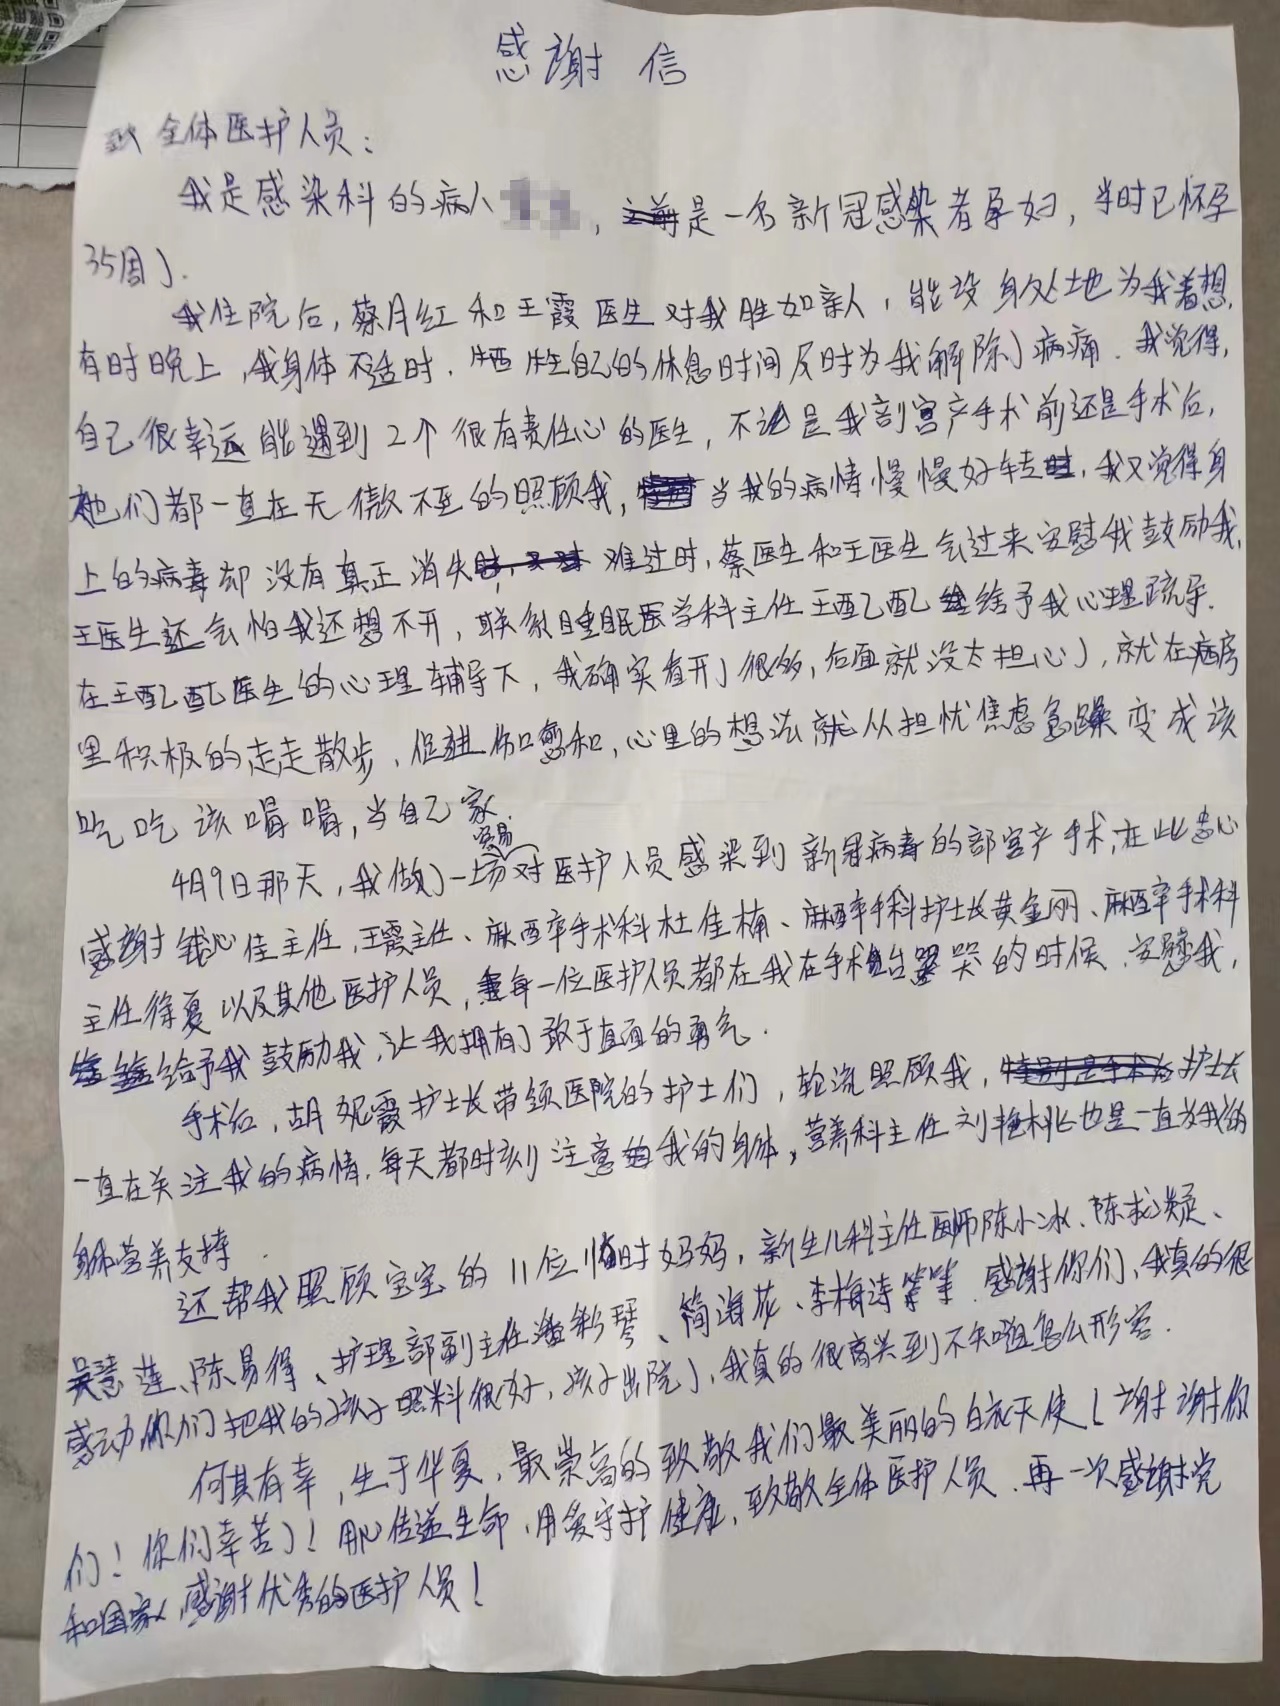 感谢信
致全体医护人员：
我是感染科的病人，是一名新冠感染者孕妇，当时已怀孕
35周了.
我住院后，蔡月红和王霞医生对我胜如亲人，能设身处地为我着想,
有时晚上，我身体不适时，牺牲自己的休息时间及时为我解除了病痛．我觉得,
自己很幸运能遇到2个很有责任心的医生，不论是我剖宫产手术前还是手术后,
她们都一直在无微不至的照顾我，当我的病情慢慢好转，我又觉得身
上的病毒却没有真正消失难过时，蔡医生和王医生会过来安慰我鼓励我,
王医生还会怕我还想不开，联系睡眠医学科主任王配配给予我心理疏导.
在王配配医生的心理辅导下，我确实看开了很多，后面就没太担心了，就在病房
里积极的走走散步，促进伤口愈和，心里的想法就从担忧焦虑急躁变成该
吃吃该喝喝，当自己家.
4月9日那天，我做了一场容易对医护人员感染到新冠病毒的部宫产手术,在此忠心
感谢钱心佳主任、王霞主任、麻醉手术科杜佳楠、麻醉手科护士长黄金丽、麻醉手术科
主任徐夏以及其他医护人员，每一位医护人员都在我在手术台哭的时候．安慰我，
给予我鼓励我，让我拥有了敢于直面的勇气.
手术后，胡妮霞护士长带领医院的护士们，轮流照顾我，护士长
一直在关注我的病情．每天都时刻注意我的身体，营养科主任刘桃也是一直为我的
身体营养支持.
还帮我照顾宝宝的11位临时妈妈，新生儿科主任医师陈小冰、陈、
吴慧莲、陈易得、护理部副主任潘彩琴、简海花、李梅涛等等．感谢你们、我真的很
感动你们把我的孩子照料很好，孩子出院了，我真的很高兴到不知道怎么形容.
何其有幸，生于华夏，最崇高的致敬我们最美丽的白衣天使！谢谢你
们！你们辛苦了！用心传递生命，用爱守护健康，致敬全体医护人员．再一次感谢党
和国家，感谢优秀的医护人员！